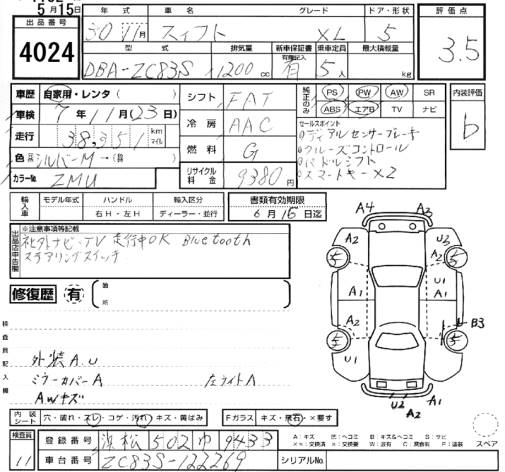 5月15日
出品番号
4024
年式 車名 グレード ドア・形状 評価点
30 11月 スイフト XL 5 3.5
型式 排気量 新車保証書 乗車定員 最大積載量
有 記入有
DBA-ZC83S 1200cc 有 5人 kg
車歴 自家用・レンタ シフト FAT 純正のみ PS PW AW SR 内装評価
ABS エアB TV ナビ b
車検 7年11月(23日) 冷房 AAC
セールスポイント
走行 38,351 km マイル ①デュアルセンサーブレーキ
②クルーズコントロール
燃料 G ③パドルシフト
色 シルバーM → ④スマートキー×2
カラーNo. ZMU リサイクル料金 9380円
輸入車 モデル年式 ハンドル 輸入区分 書類有効期限
右H・左H ディーラー・並行 6月16日迄
出品店申告欄
※注意事項等記載
社外ナビ・TV 走行中OK Bluetooth
ステアリングスイッチ
修復歴 有
検査員記入欄
外装A.U
ミラーカバーA 左ライトA
AWキズ
A4 A3
A2 U3
5 A2 5
A1 A1 U1
A2 A2 B3
5 5
U1 A1
U2 A2 A1
内装シート 穴・破れ・スレ・コゲ・汚れ・キズ・黄ばみ Fガラス キズ・飛石・×要す
検査員 11 登録番号 浜松 502 9433
車台番号 ZC83S-122269 シリアルNo.
スペア